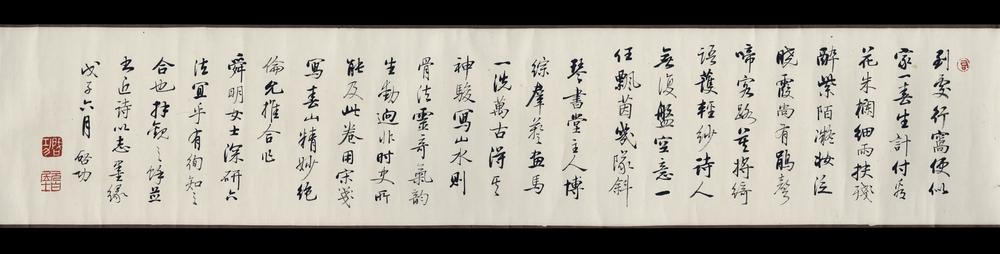 到處行窩便似
家一春生計付看
花朱欄細雨扶殘
醉紫陌凝妝泛
曉霞尚有鵑聲
啼客路莫將綺
語護輕紗詩人
無復盤空意一
任飄茵幾隊斜
琴書堂主人博
綜羣藝畫馬
一洗萬古得其
神駿寫山水則
骨法靈奇氣韻
生動迥非時史所
能及此卷用宋箋
寫春山精妙絕
倫允推合作
舜明女士深研六
法宜乎有徇知之
合也拜觀之餘並
書近詩以志墨緣
戊子六月 啓功